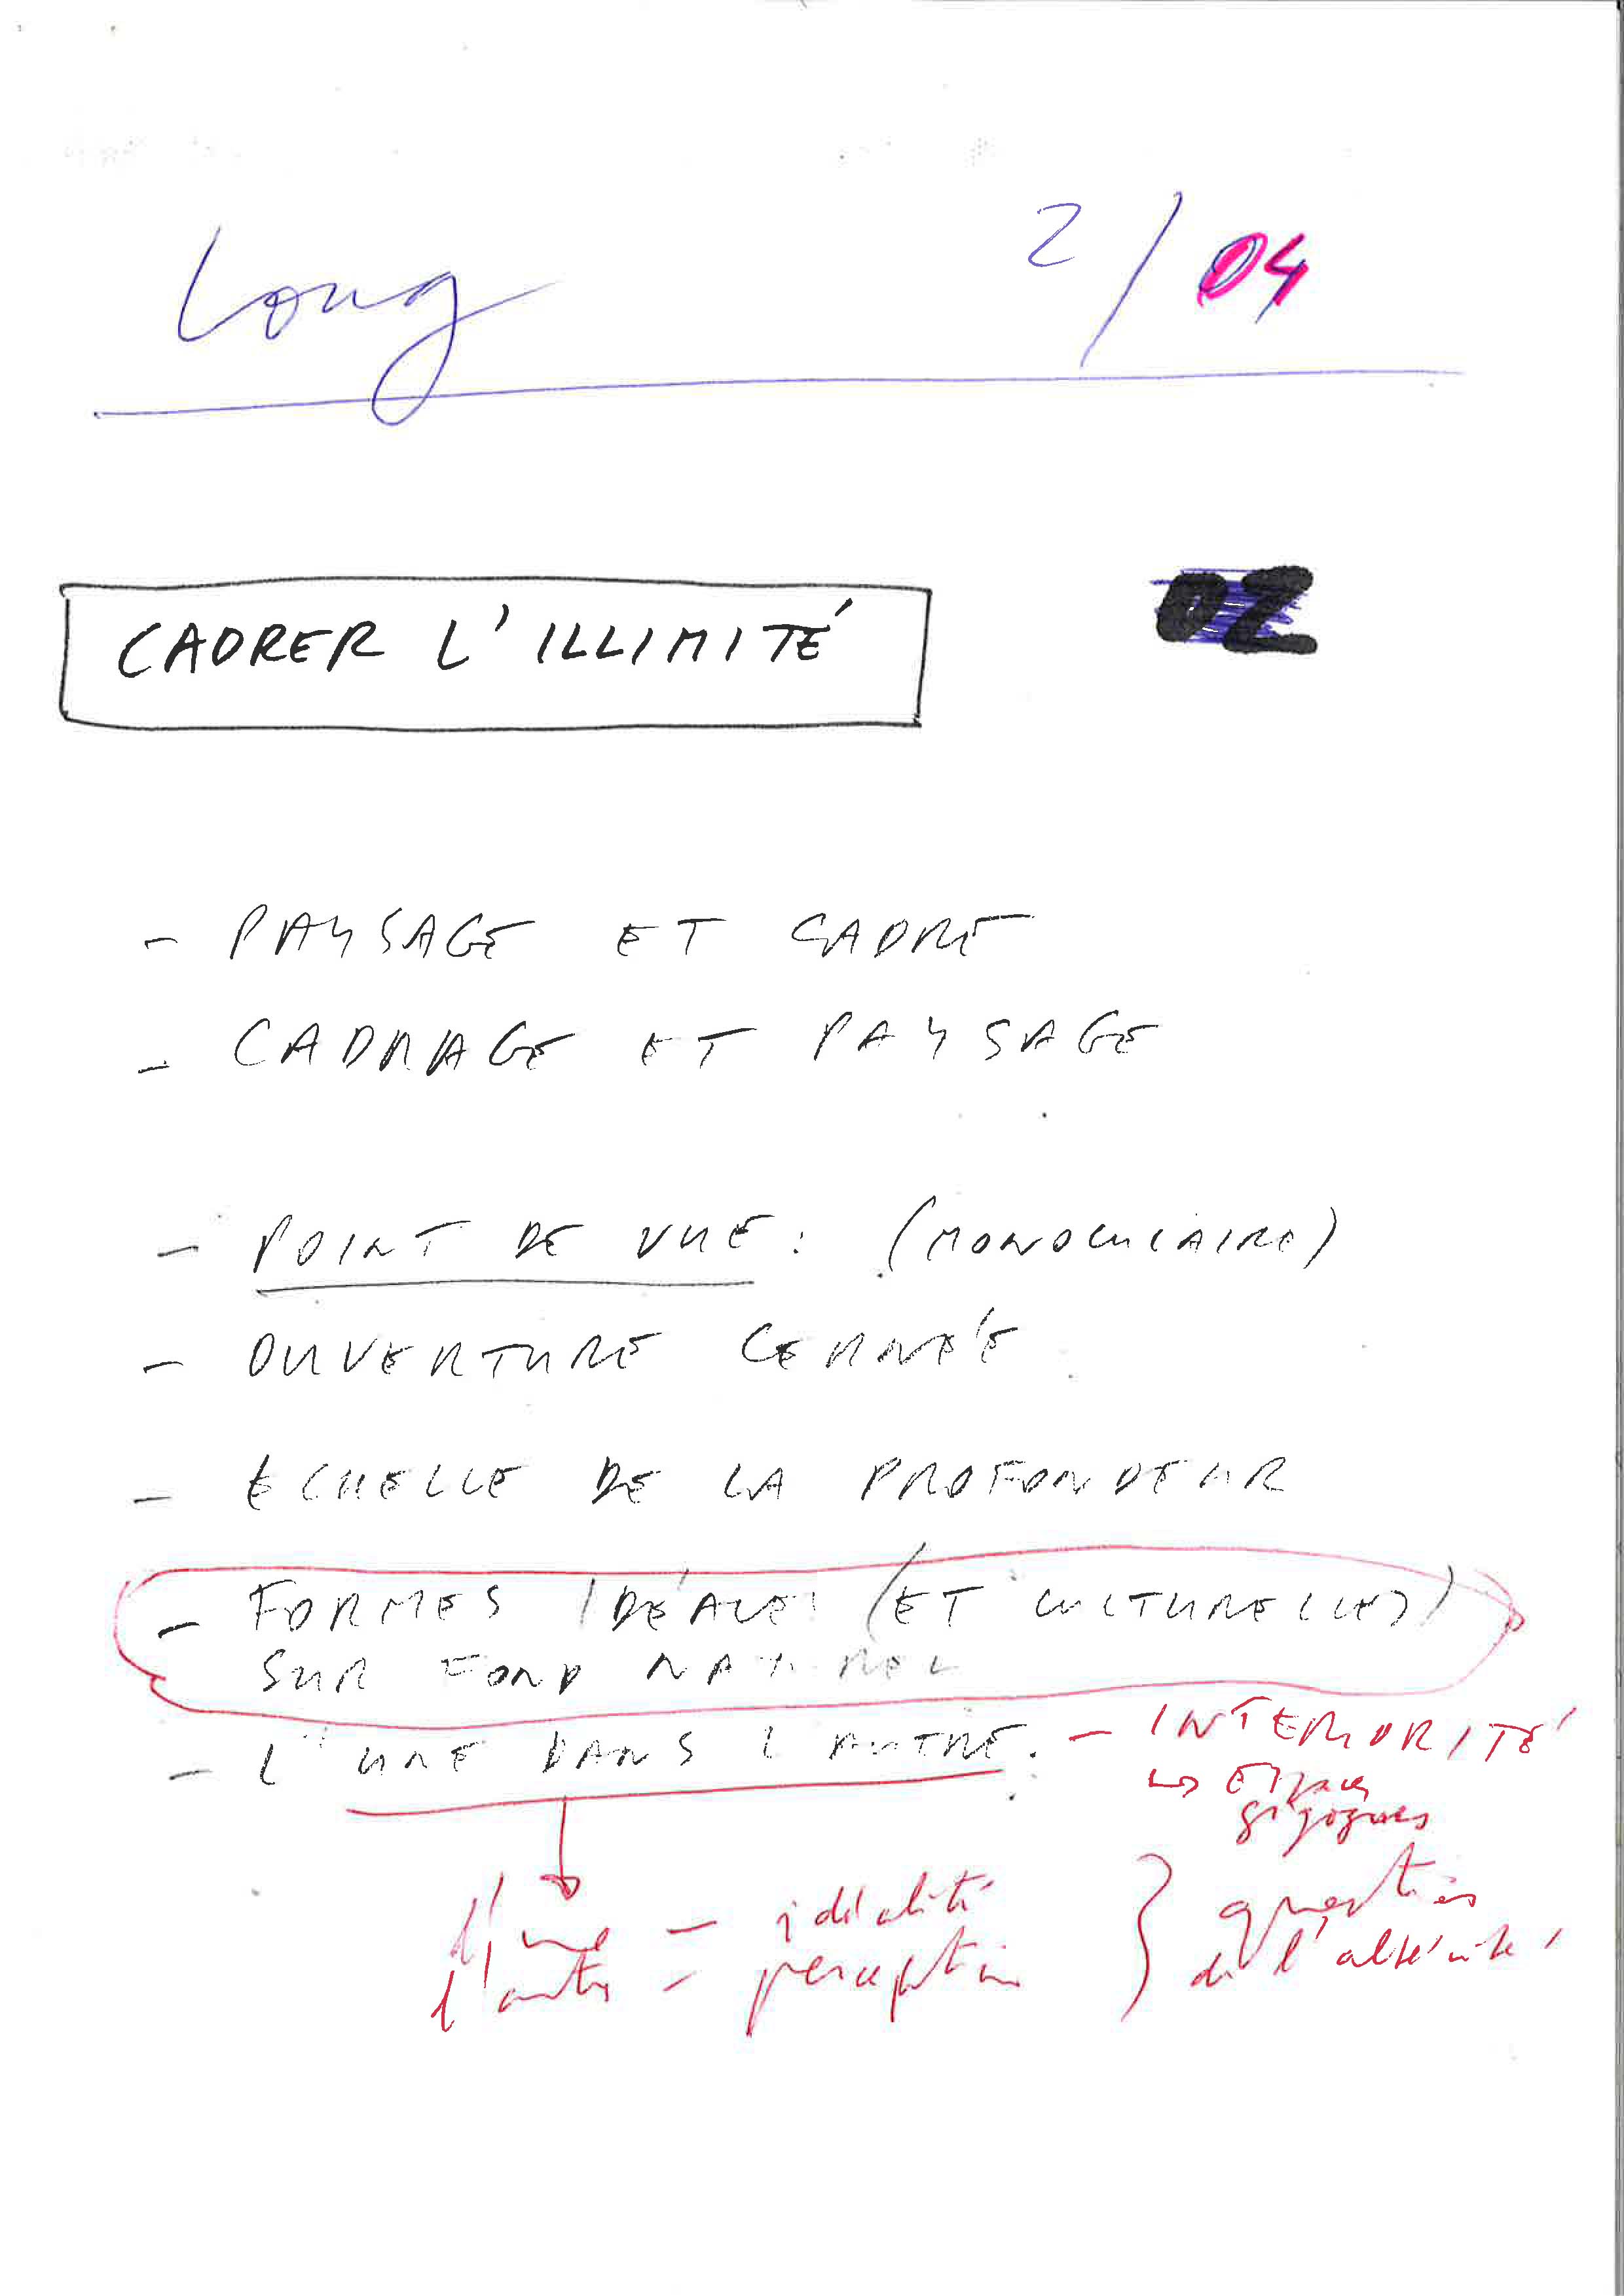 Long 2/04
CADRER L'ILLIMITÉ 02
- PAYSAGE ET CADRE
- CADRAGE ET PAYSAGE
- POINT DE VUE : (MONOCULAIRE)
- OUVERTURE CERNÉE
- ECHELLE DE LA PROFONDEUR
- FORMES IDÉALES (ET CULTURELLES)
SUR FOND NATUREL
- L'UNE DANS L'AUTRE. - INTERIORITÉ
↳ Espaces
gigognes
l'une - idéalité } question
l'autre - perception de l'altérité